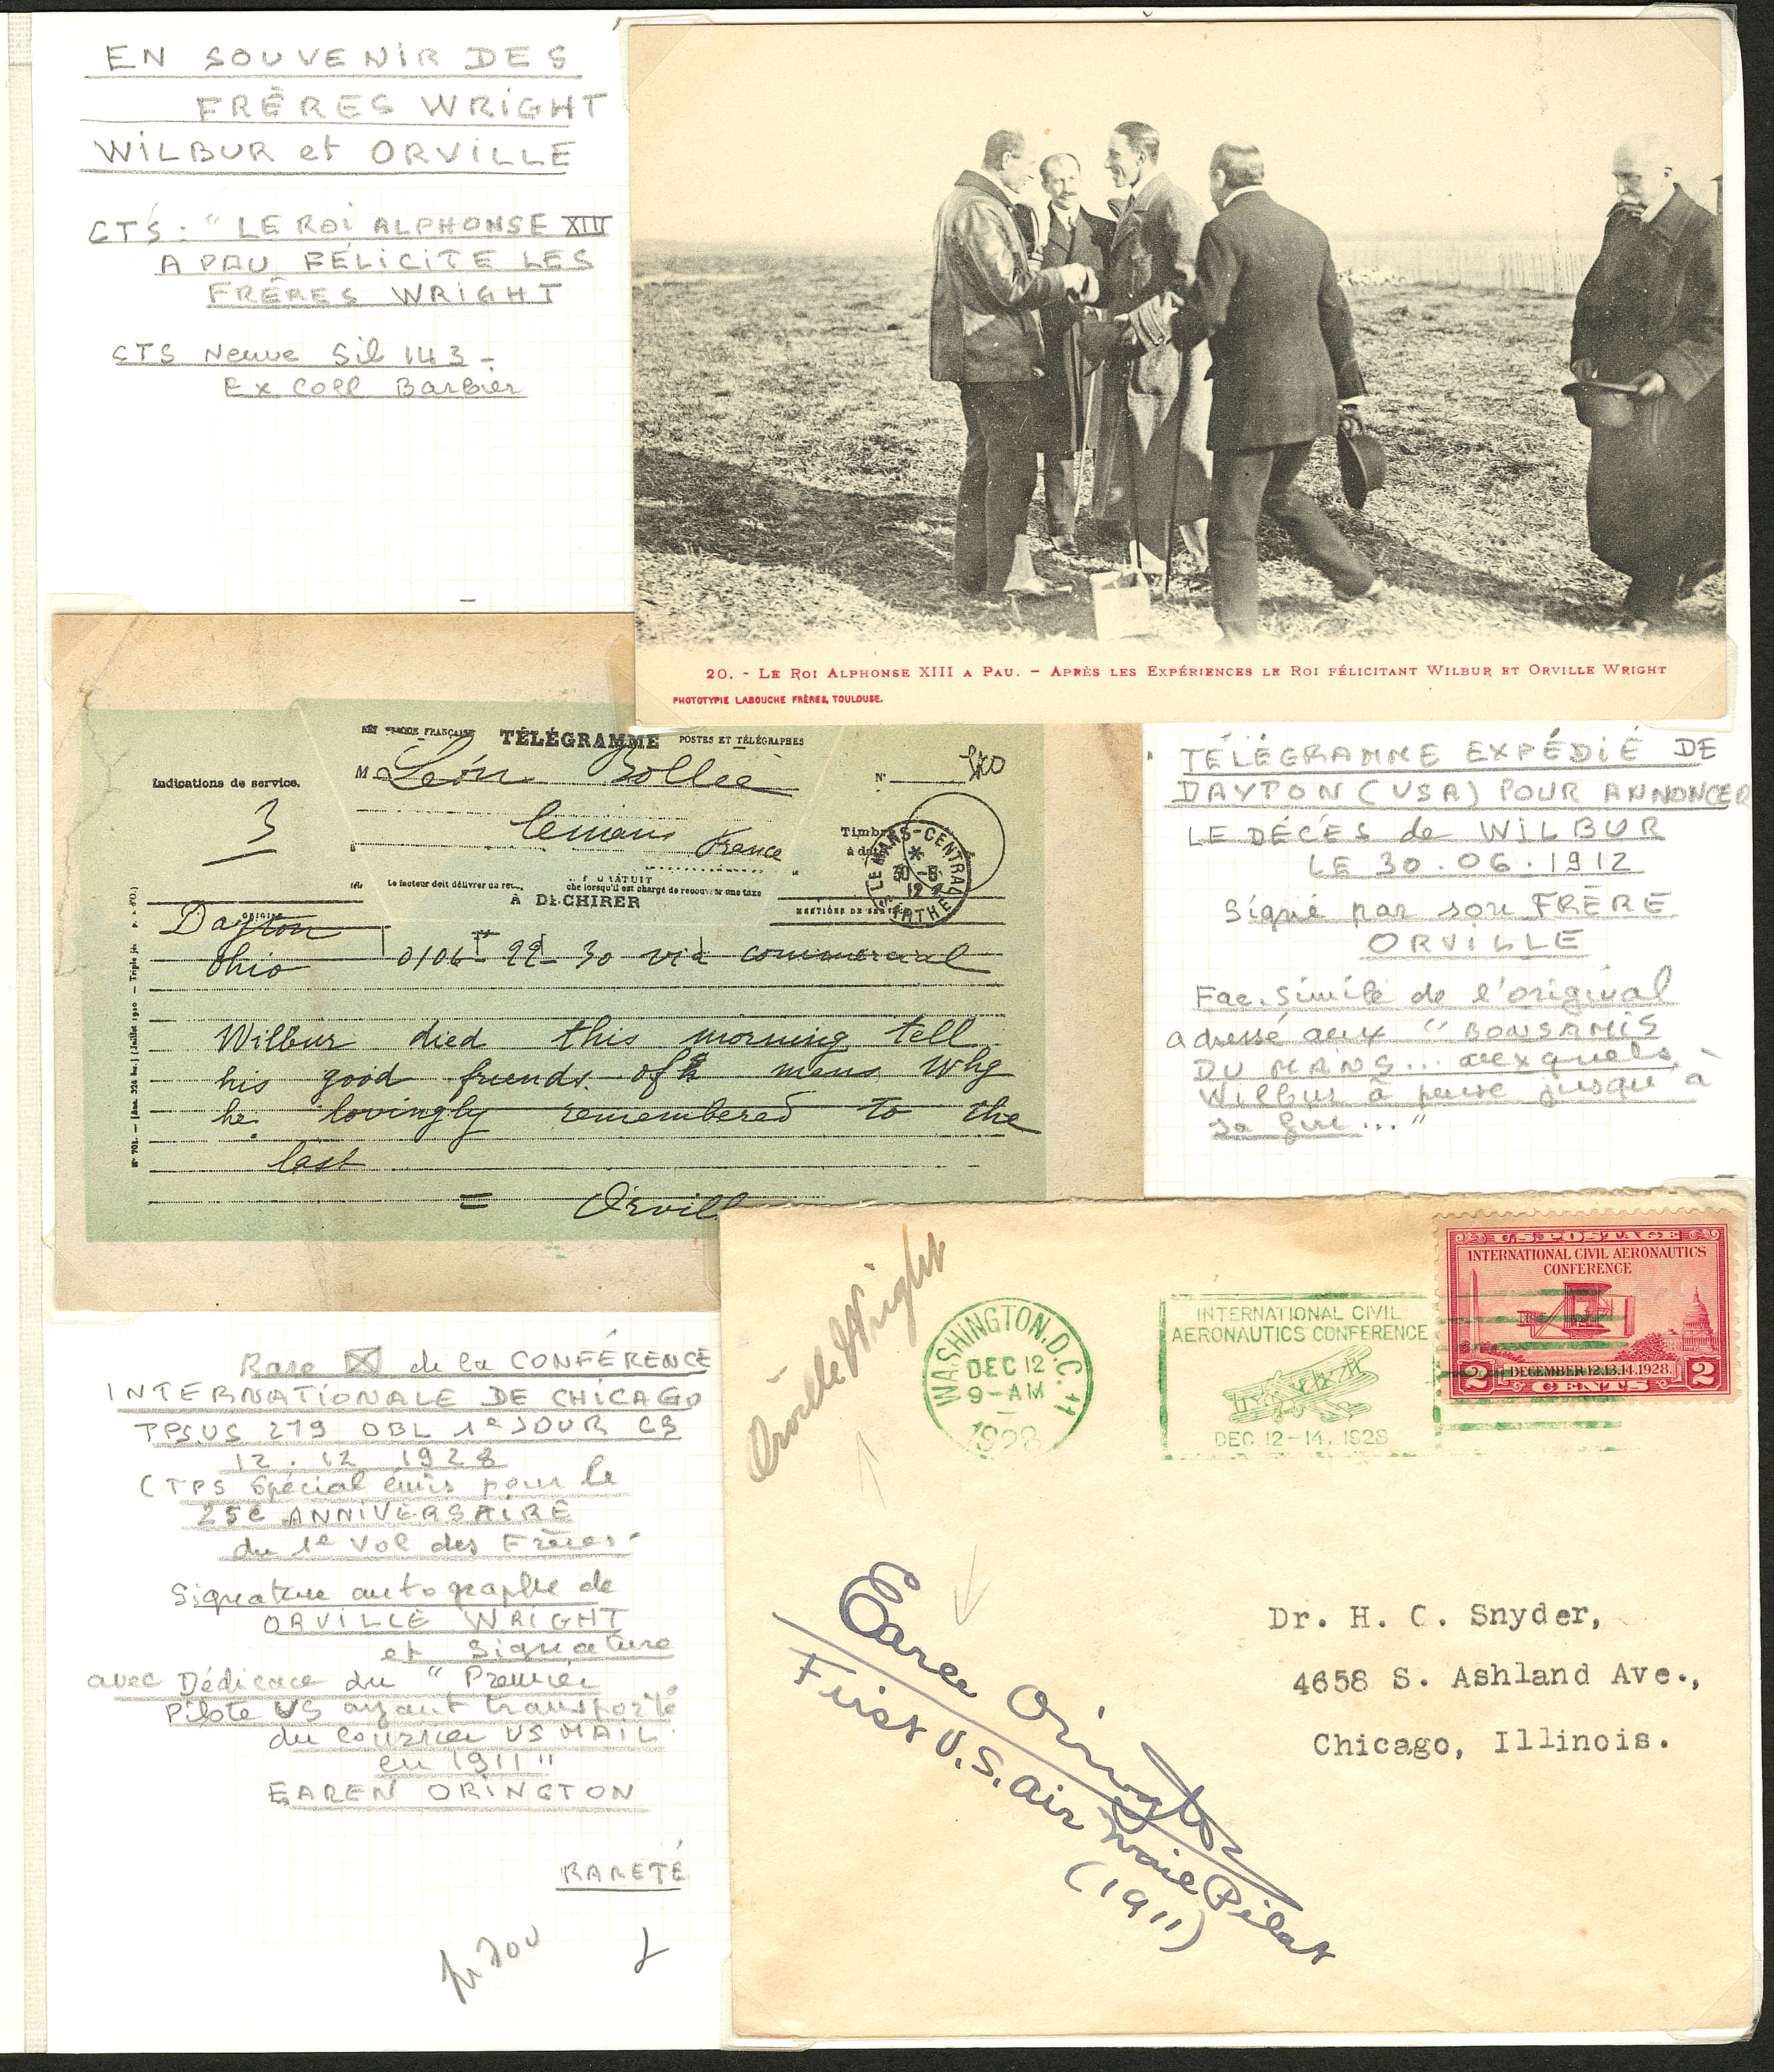 EN SOUVENIR DES
FRÈRES WRIGHT
WILBUR et ORVILLE
CTS : "LE ROI ALPHONSE XIII
A PAU FÉLICITE LES
FRÈRES WRIGHT
CTS Neuve Sil 143 -
Ex Coll Barbier
20. - LE ROI ALPHONSE XIII A PAU. - APRÈS LES EXPÉRIENCES LE ROI FÉLICITANT WILBUR ET ORVILLE WRIGHT
PHOTOTYPIE LABOUCHE FRÈRES, TOULOUSE.
FRANÇAISE TÉLÉGRAMME POSTES ET TÉLÉGRAPHES
Indications de service.
M Léon Bollée
N°
3
lemans France
Timbre à date
LE MANS-CENTRAL
SARTHE
Le facteur doit délivrer un
GRATUIT
che lorsqu'il est chargé de recouvrer une taxe
À DÉCHIRER
ORIGINE
MENTIONS DE SERVICE
Dayton
Ohio 0/06 22 - 30 via commercial
Wilbur died this morning tell
his good friends of mans why
he lovingly remembered to the
last
= Orvill
TÉLÉGRAMME EXPÉDIÉ DE
DAYTON (USA) POUR ANNONCER
LE DÉCÈS de WILBUR
LE 30.06.1912
Signé par son FRÈRE
ORVILLE
Fac. Similé de l'original
adressé aux "BONS AMIS
DU MANS... auxquels
Wilbur à pensé jusqu'à
sa fin..."
Rare de la CONFÉRENCE
INTERNATIONALE DE CHICAGO
TPS.US 279 OBL 1e JOUR CS
12.12 1928
(TPS Spécial émis pour le
25e ANNIVERSAIRE
du 1e Vol des Frères
Signature autographe de
ORVILLE WRIGHT
et Signature
avec Dédicace du "Premier
Pilote US ayant transporté
du Courrier US MAIL
en 1911"
EAREN ORINGTON
RARETÉ
Orville Wright
WASHINGTON, D.C. 11
DEC 12
9-AM
1928
INTERNATIONAL CIVIL
AERONAUTICS CONFERENCE
DEC. 12-14, 1928
U.S. POSTAGE
INTERNATIONAL CIVIL AERONAUTICS
CONFERENCE
2 DECEMBER 12.13.14.1928. 2
CENTS
Earen Orington
First U.S. Air Mail Pilot
(1911)
Dr. H. C. Snyder,
4658 S. Ashland Ave.,
Chicago, Illinois.